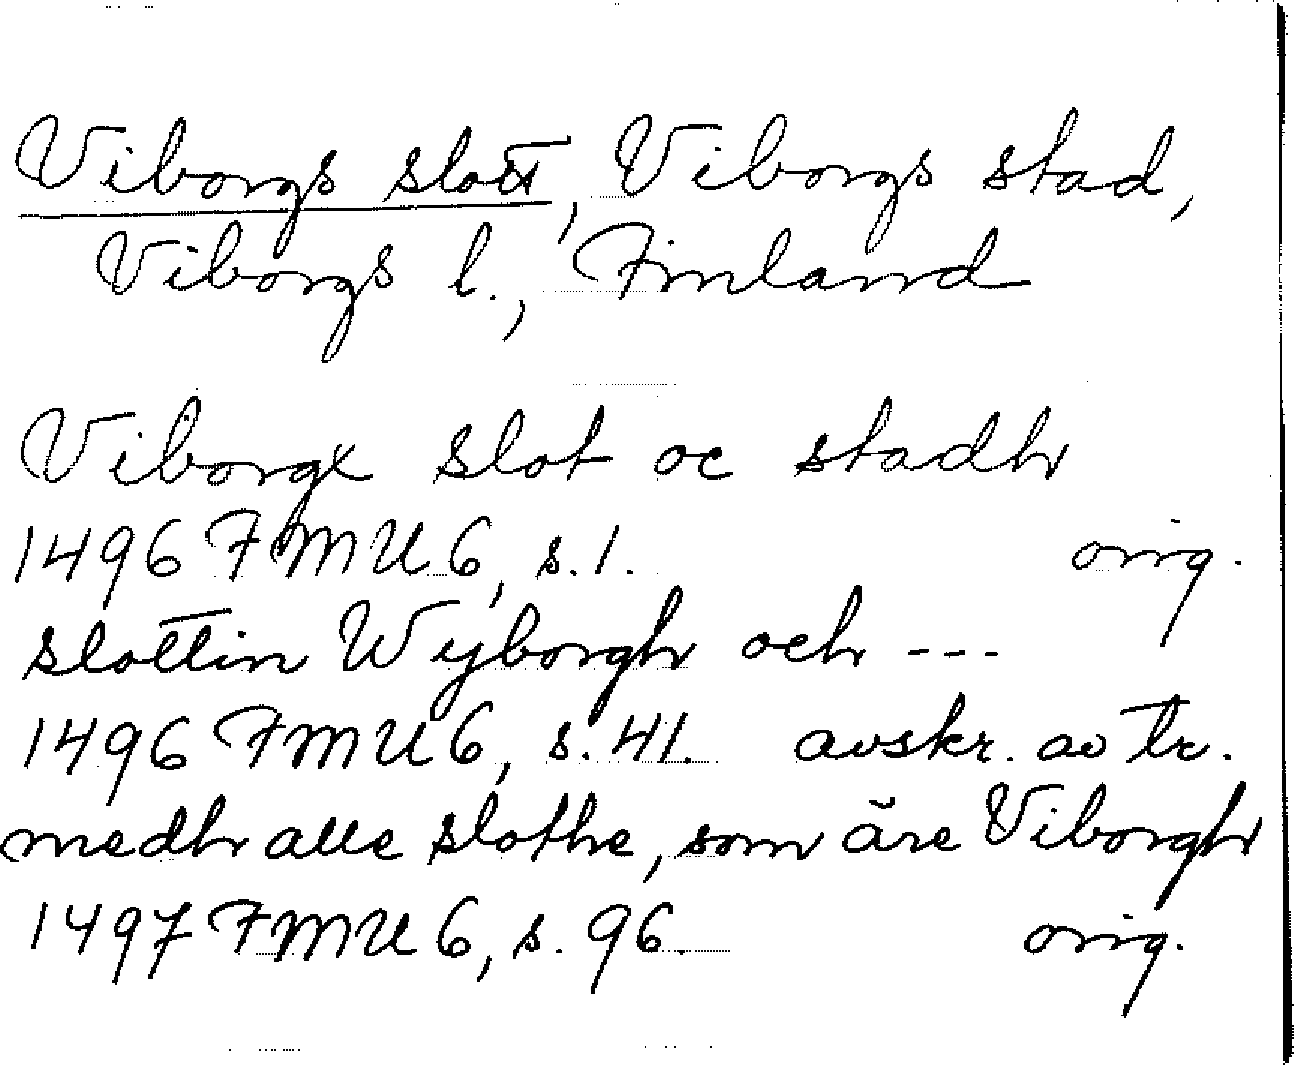 Viborgs slott, Viborgs stad,
Viborgs l., Finland
Viborgx slot oc stadh
1496 FMU 6, s. 1. orig.
slottin Wyborgh och ---
1496 FMU 6, s. 41. avskr. av tr.
medh alle slothe, som äre Viborgh
1497 FMU 6, s. 96. orig.